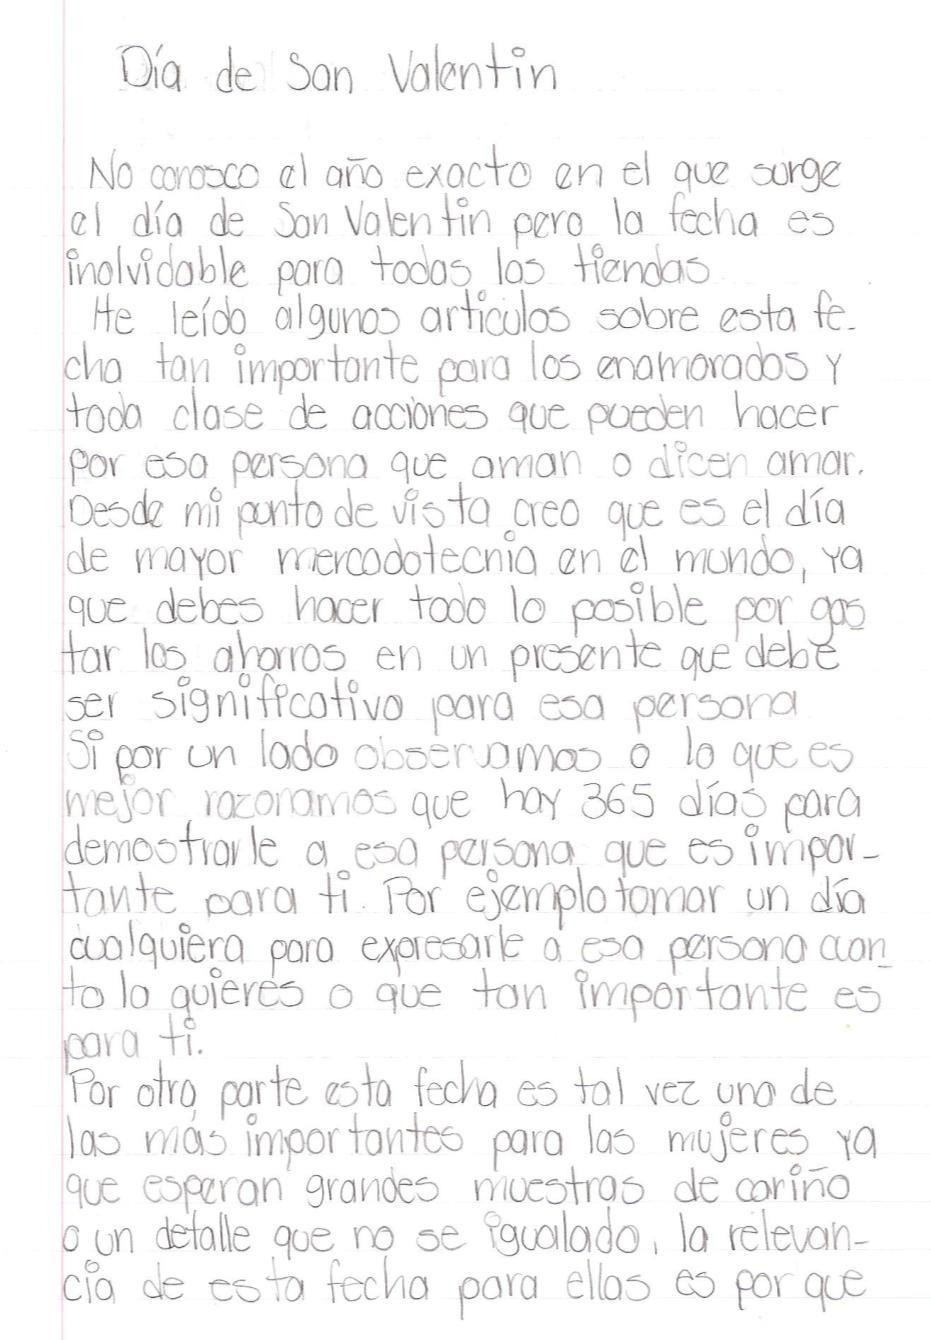 Día de San Valentin
No conosco el año exacto en el que surge
el día de San Valentin pero la fecha es
inolvidable para todas las tiendas
He leído algunos articulos sobre esta fe-
cha tan importante para los enamorados y
toda clase de acciones que pueden hacer
por esa persona que aman o dicen amar.
Desde mi punto de vista creo que es el día
de mayor mercadotecnia en el mundo, ya
que debes hacer todo lo posible por gas
tar los ahorros en un presente que debe
ser significativo para esa persona
Si por un lado observamos o lo que es
mejor razonamos que hay 365 días para
demostrarle a esa persona que es impor-
tante para ti. Por ejemplo tomar un día
cualquiera para expresarle a esa persona cuan_
to lo quieres o que tan importante es
para ti.
Por otra parte esta fecha es tal vez una de
las más importantes para las mujeres ya
que esperan grandes muestras de cariño
o un detalle que no se igualado, la relevan-
cia de esta fecha para ellas es por que